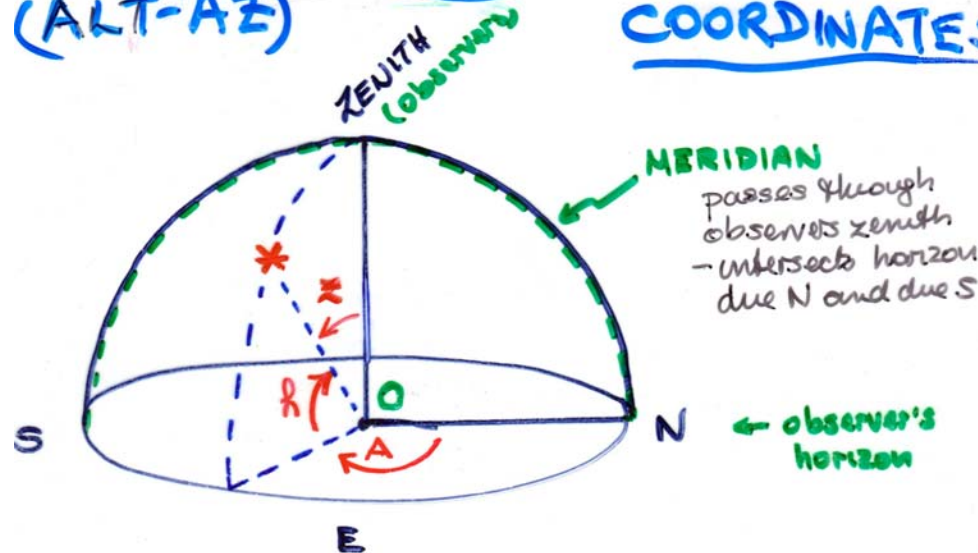 (ALT-AZ)
COORDINATES
ZENITH
(observer)
MERIDIAN
passes through
observers zenith
-intersects horizon
due N and due S
z
h
O
A
S
N
← observer's
horizon
E